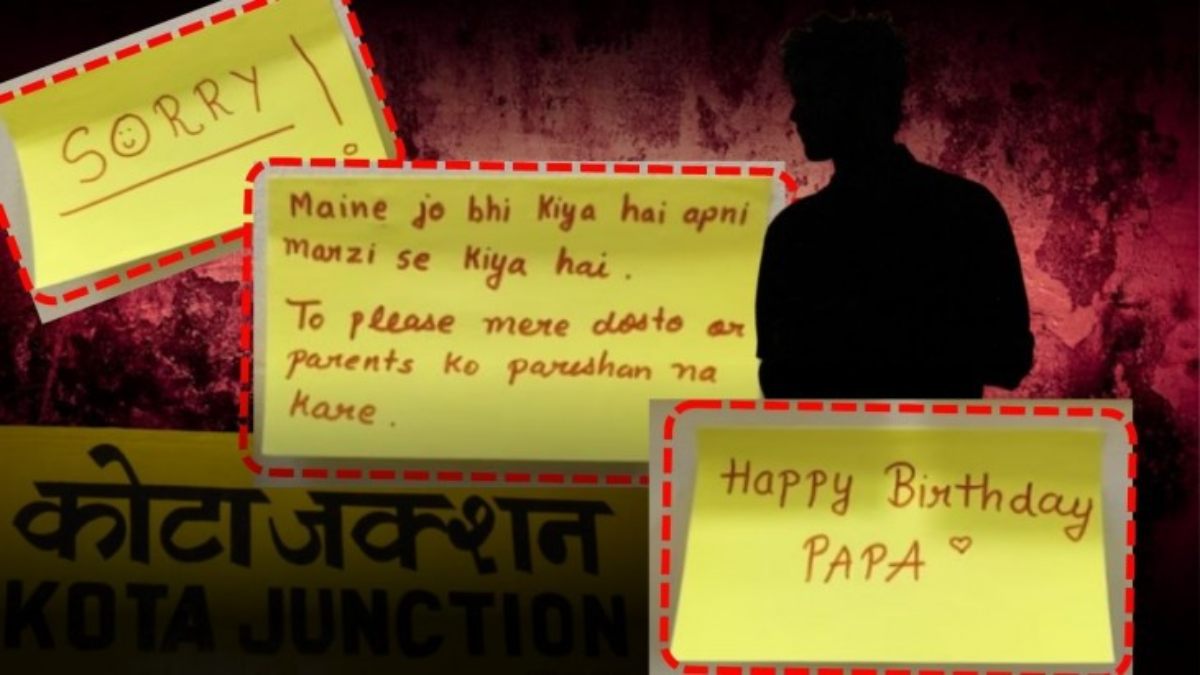 SORRY!
Maine jo bhi kiya hai apni
marzi se kiya hai.
To please mere dosto or
parents ko pareshan na
kare.
Happy Birthday
PAPA ♡
कोटा जंक्शन
KOTA JUNCTION